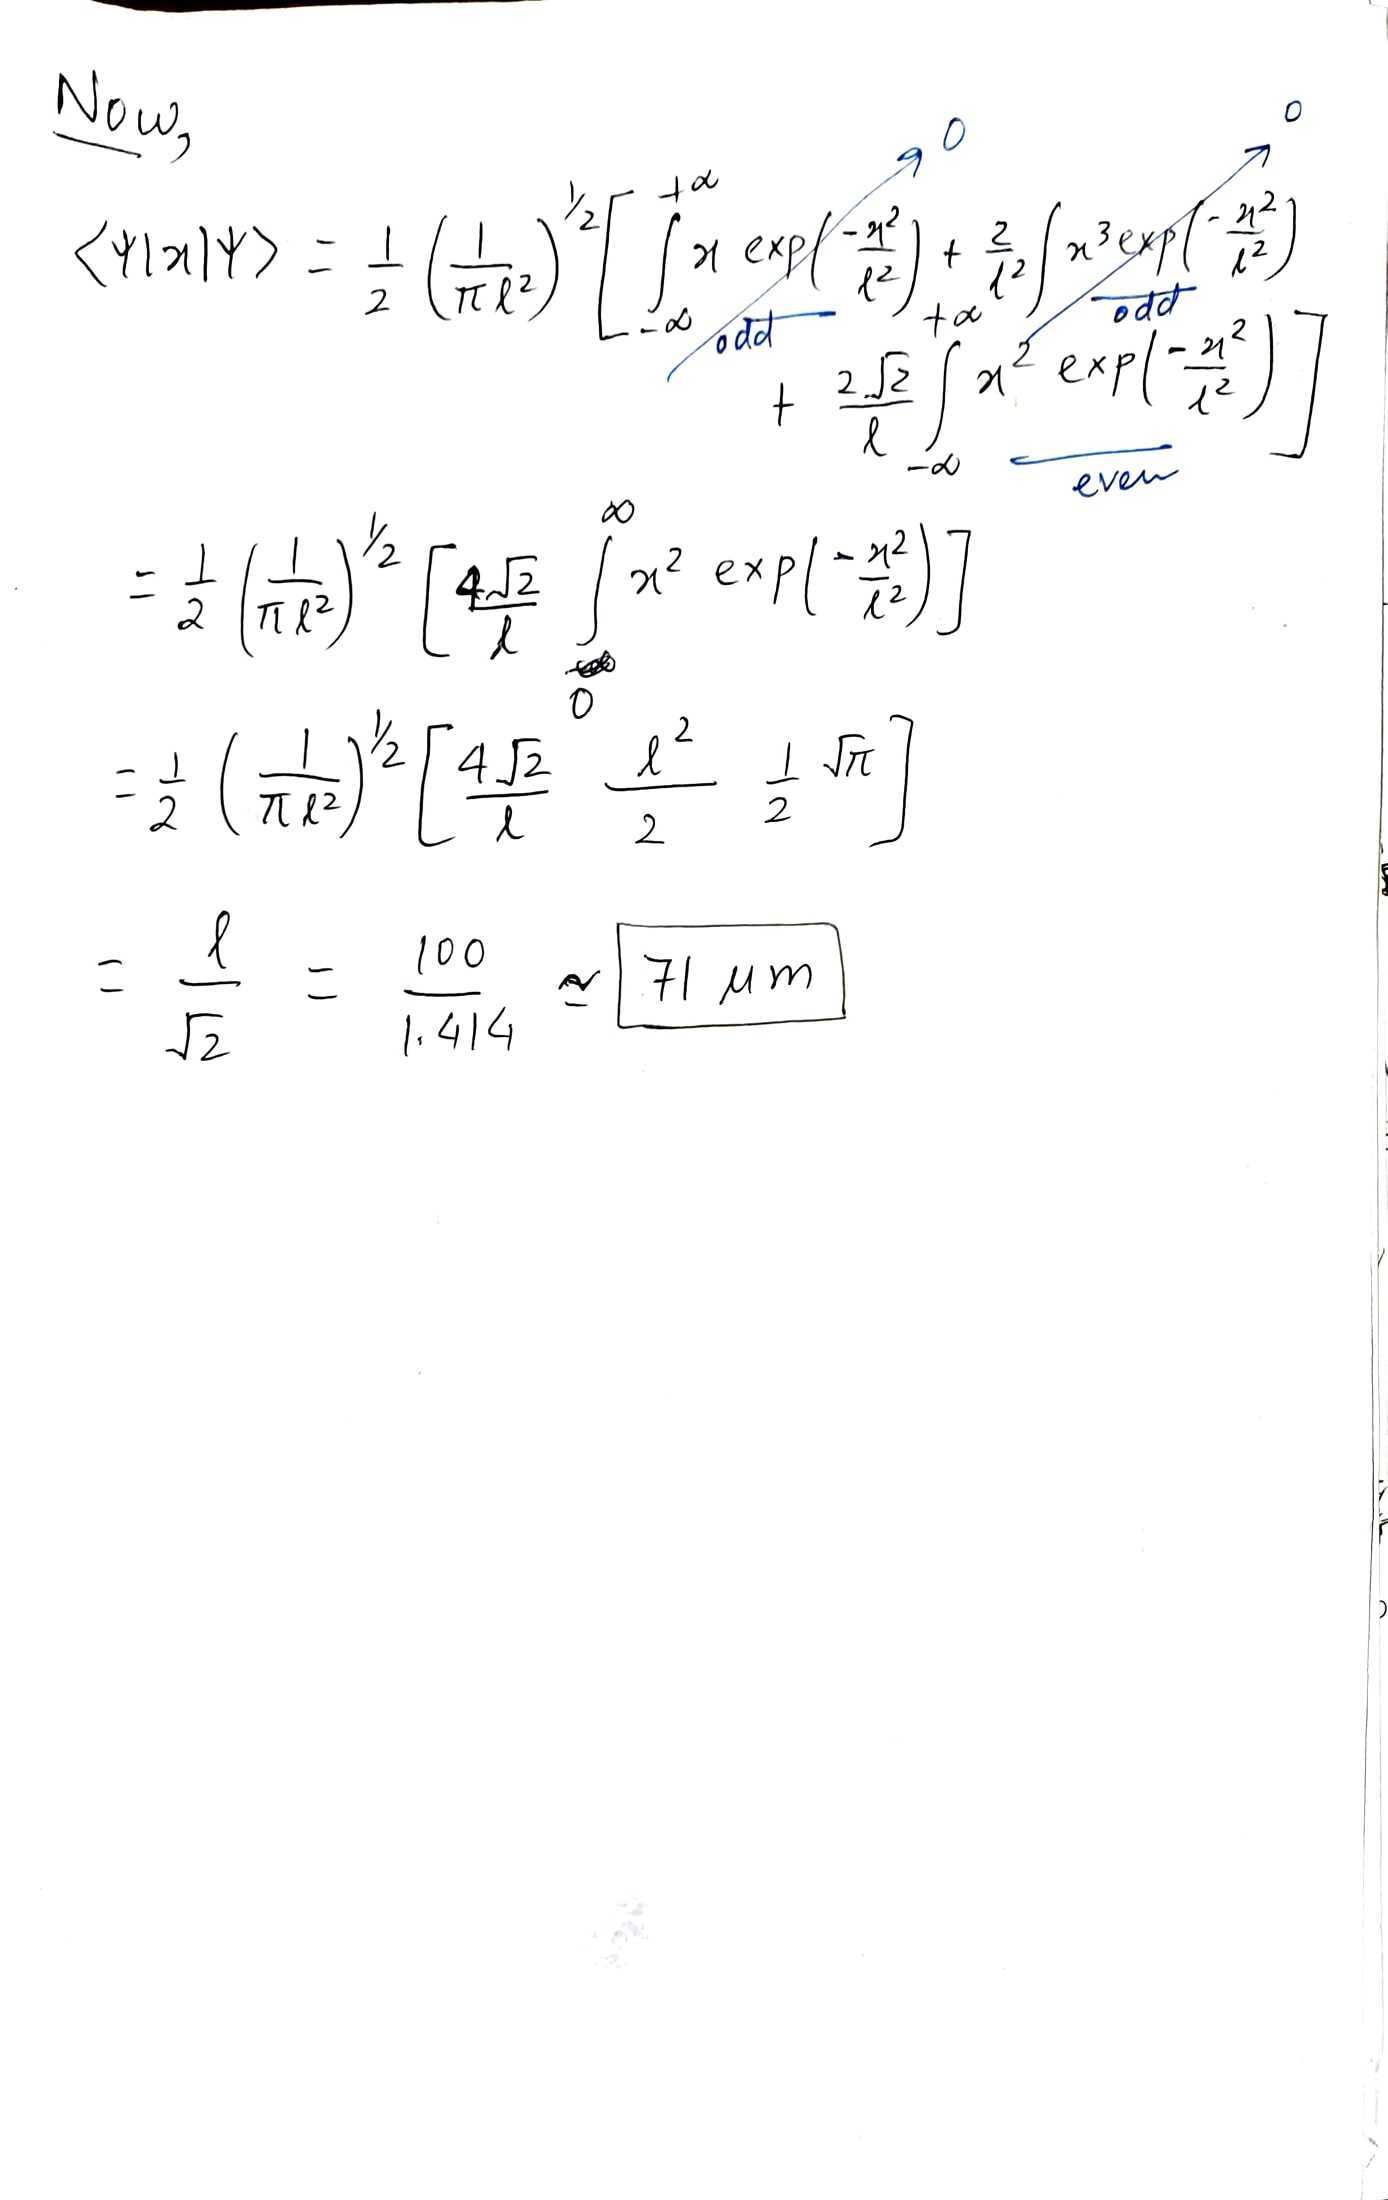 Now,
0 0
⟨ψ|x|ψ⟩ = 1/2 (1/πl²)^1/2 [ ∫_-∞^+∞ x exp(-x²/l²) + 2/l² ∫ x³ exp(-x²/l²)
odd odd
+ 2√2/l ∫_-∞^+∞ x² exp(-x²/l²) ]
even
= 1/2 (1/πl²)^1/2 [ 4√2/l ∫_0^∞ x² exp(-x²/l²) ]
= 1/2 (1/πl²)^1/2 [ 4√2/l l²/2 1/2 √π ]
= l/√2 = 100/1.414 ≃ 71 μm